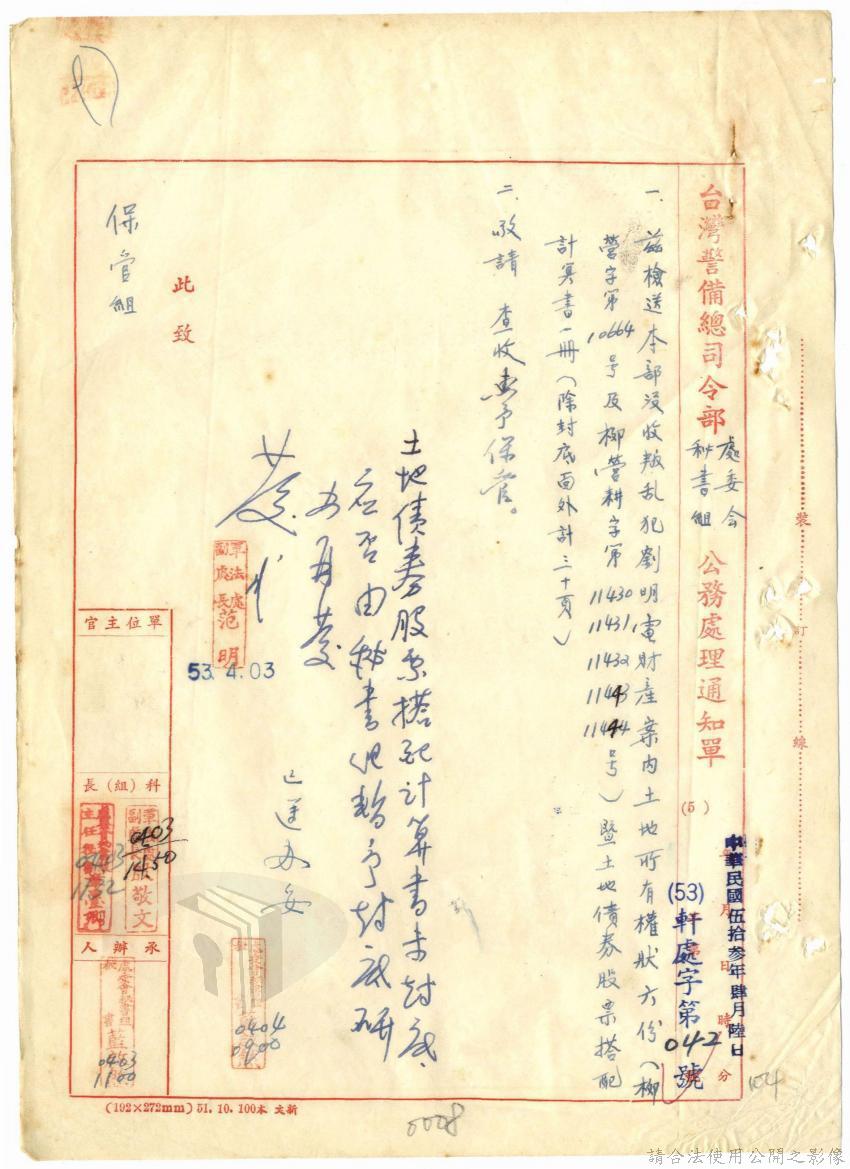 台灣警備總司令部 處委會秘書組 公務處理通知單
(5)
中華民國伍拾參年肆月陸日
月 日 時 分
(53)軒處字第042號
裝 訂 線
一、茲檢送本部沒收叛乱犯劉明電財產案内土地所有權狀六份(柳
營字第10664号及柳營耕字第11430 11431 11432 11443 11444号)暨土地債券股票搭配
計算書一冊(除封底面外計三十頁)
二、敬請 查收惠予保管。
土地債券股票搭配計算書未封底
應否由秘書組
封底研
此致
保管組
副處長 軍法處 范明
53.4.03
單位主官
科(組)長
敬文
0403
1450
0403
1132
承辦人
0403
1100
0404
0900
(192×272mm) 51. 10. 100本 文新
0008
104
請合法使用公開之影像